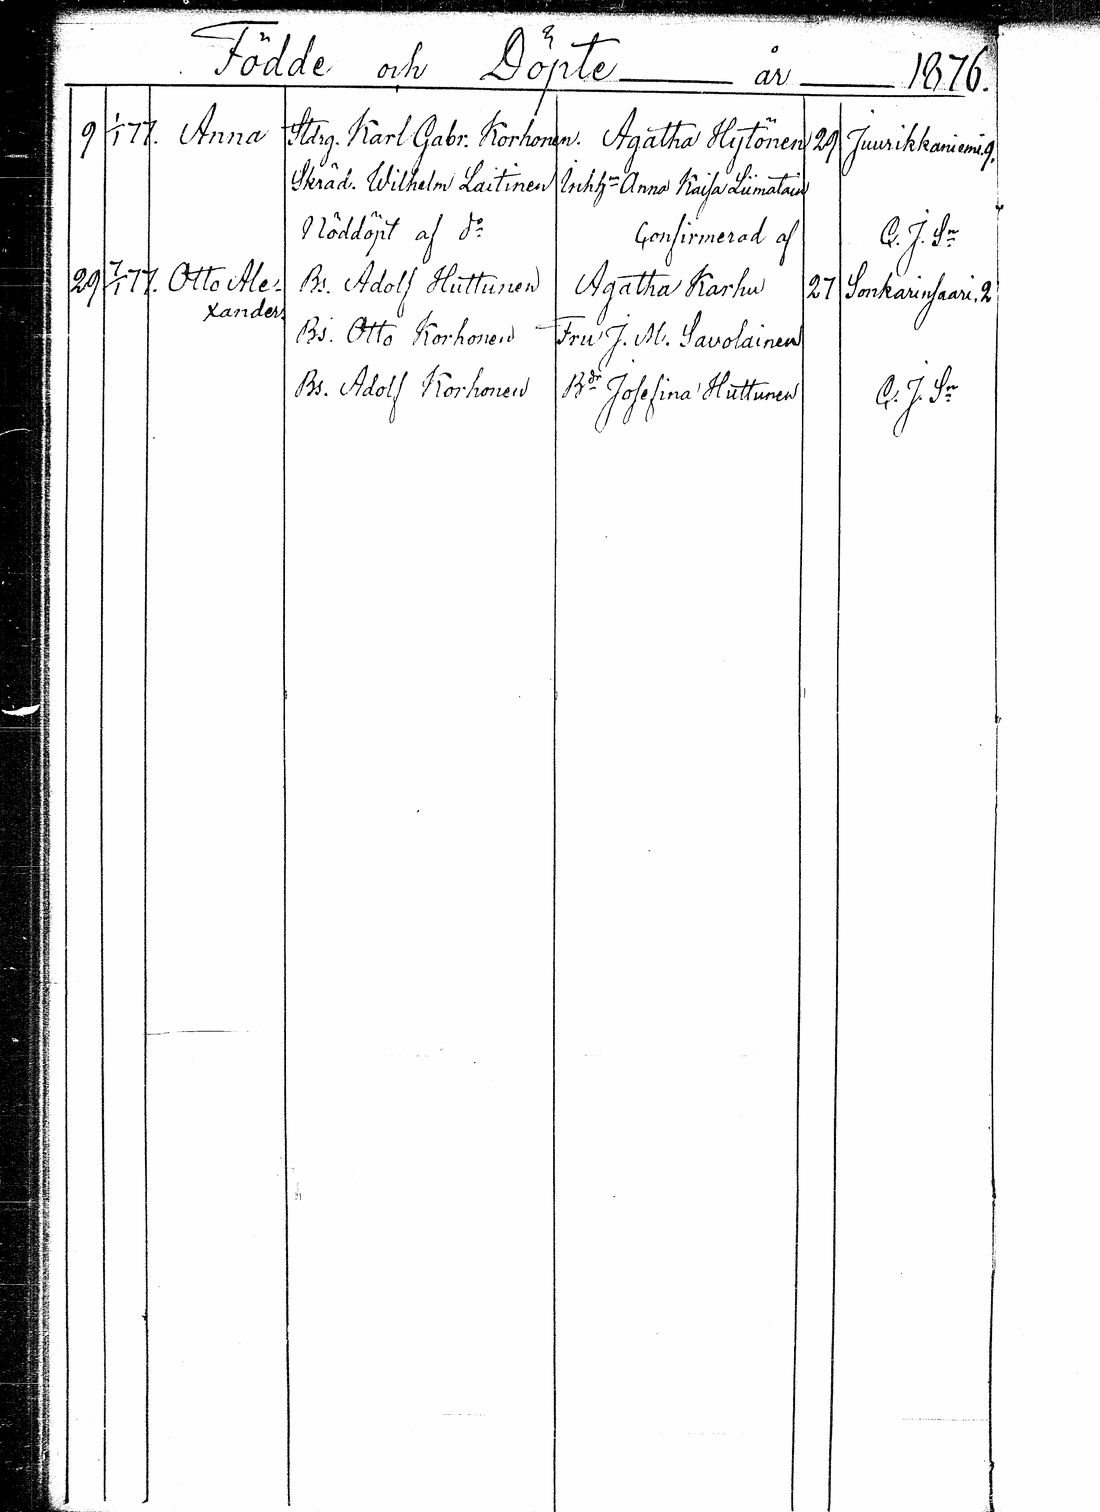 Födde och Döpte år 1876.
9 1/1 77. Anna Stdrg. Karl Gabr. Korhonen. Agatha Hytönen 29 Juurikkaniemi. 9.
Skräd. Wilhelm Laitinen Anna Kaisa Liimatain
Nöddöpt af do Confirmerad af C. J. Sn
29 7/1 77. Otto Ale- Bs. Adolf Huttunen Agatha Karhu 27 Sonkarinsaari. 2
xander
Bs. Otto Korhonen Fru J. M. Savolainen
Bs. Adolf Korhonen Bdr Josefina Huttunen C. J. Sn